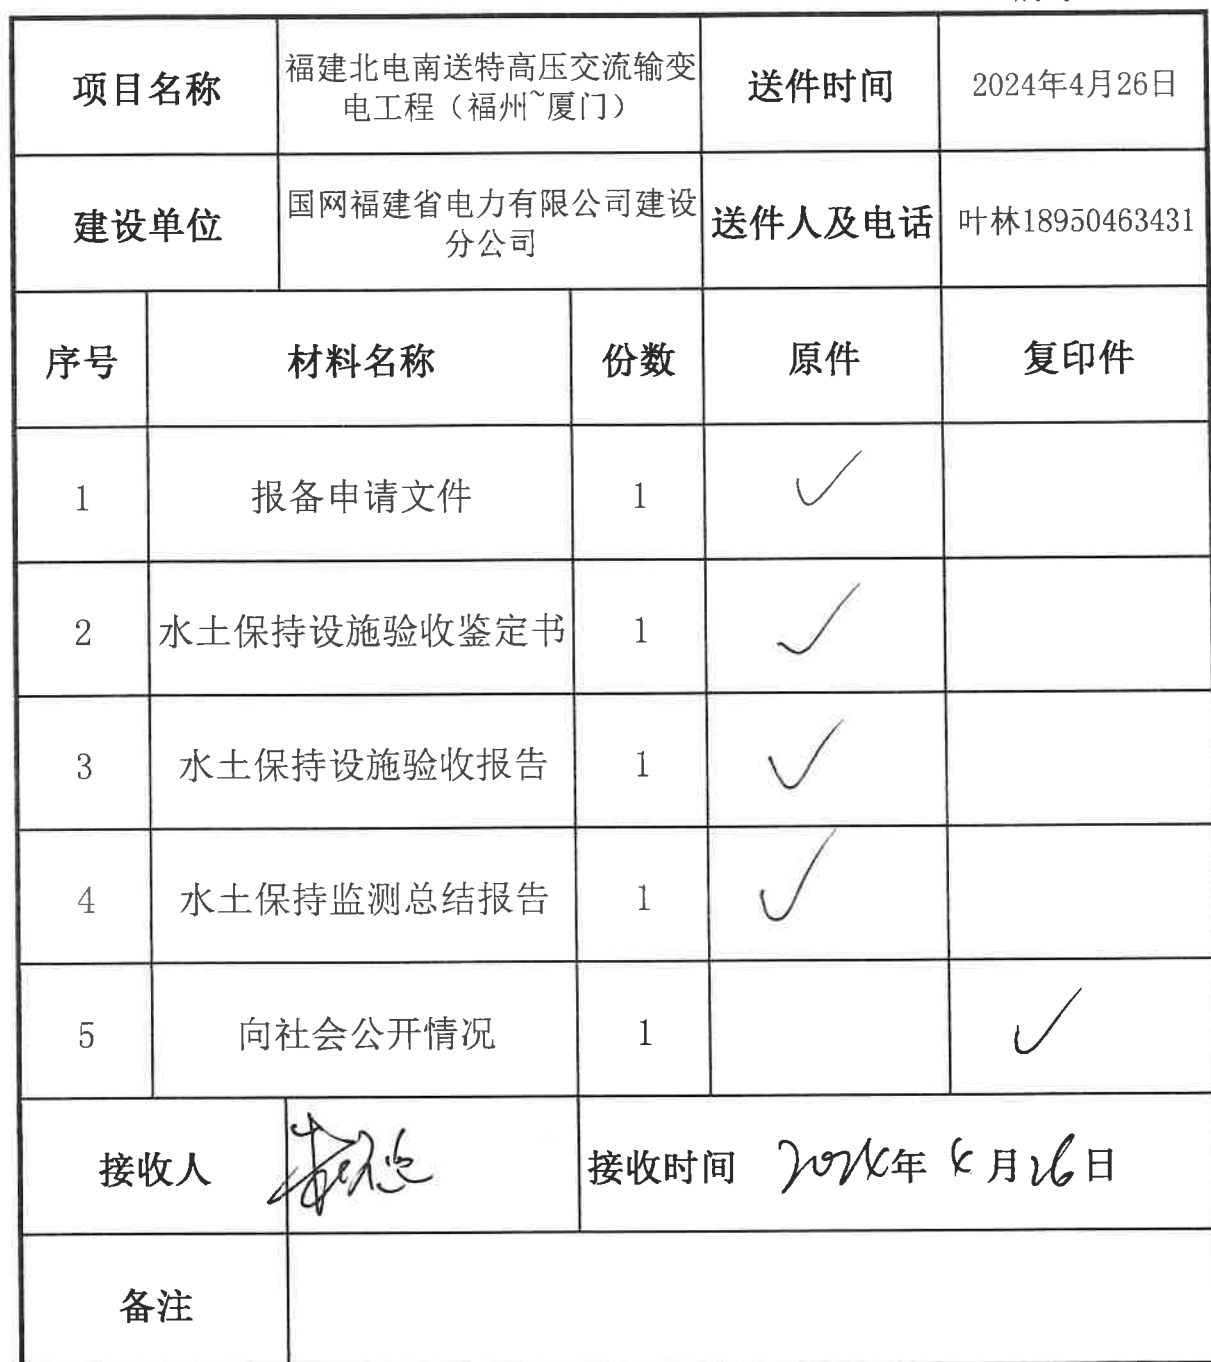 项目名称
福建北电南送特高压交流输变
电工程（福州~厦门）
送件时间
2024年4月26日
建设单位
国网福建省电力有限公司建设
分公司
送件人及电话
叶林18950463431
序号 材料名称 份数 原件 复印件
1 报备申请文件 1 ✓
2 水土保持设施验收鉴定书 1 ✓
3 水土保持设施验收报告 1 ✓
4 水土保持监测总结报告 1 ✓
5 向社会公开情况 1 ✓
接收人
接收时间 2024年4月26日
备注